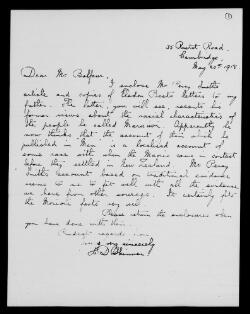 1
35 Road.
Cambridge.
May 20th 1918
Dear Mr. Balfour.
I enclose Mr Percy Smith's
article and copies of Elsdon Best's letters to my
father. The latter, you will see, recants his
former views about the racial characteristics of
the people he called Maruiwi. Apparently he
now thinks that the account of them which he
published in Man is a localised account of
some race with whom the Maoris came in contact
before they settled in New Zealand. Mr Percy
Smith's account based on traditional evidence
seems to me to fit well with all the evidence
we have from other sources. It certainly fits
the Moriori facts very well.
Please return the enclosures when
you have done with them.
Kindest regards from
Yours very sincerely
H. D. Skinner